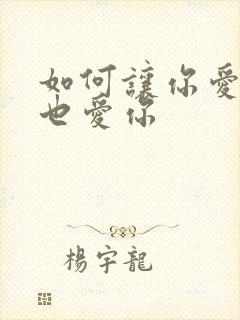 如何讓你愛
也愛你
楊宇龍